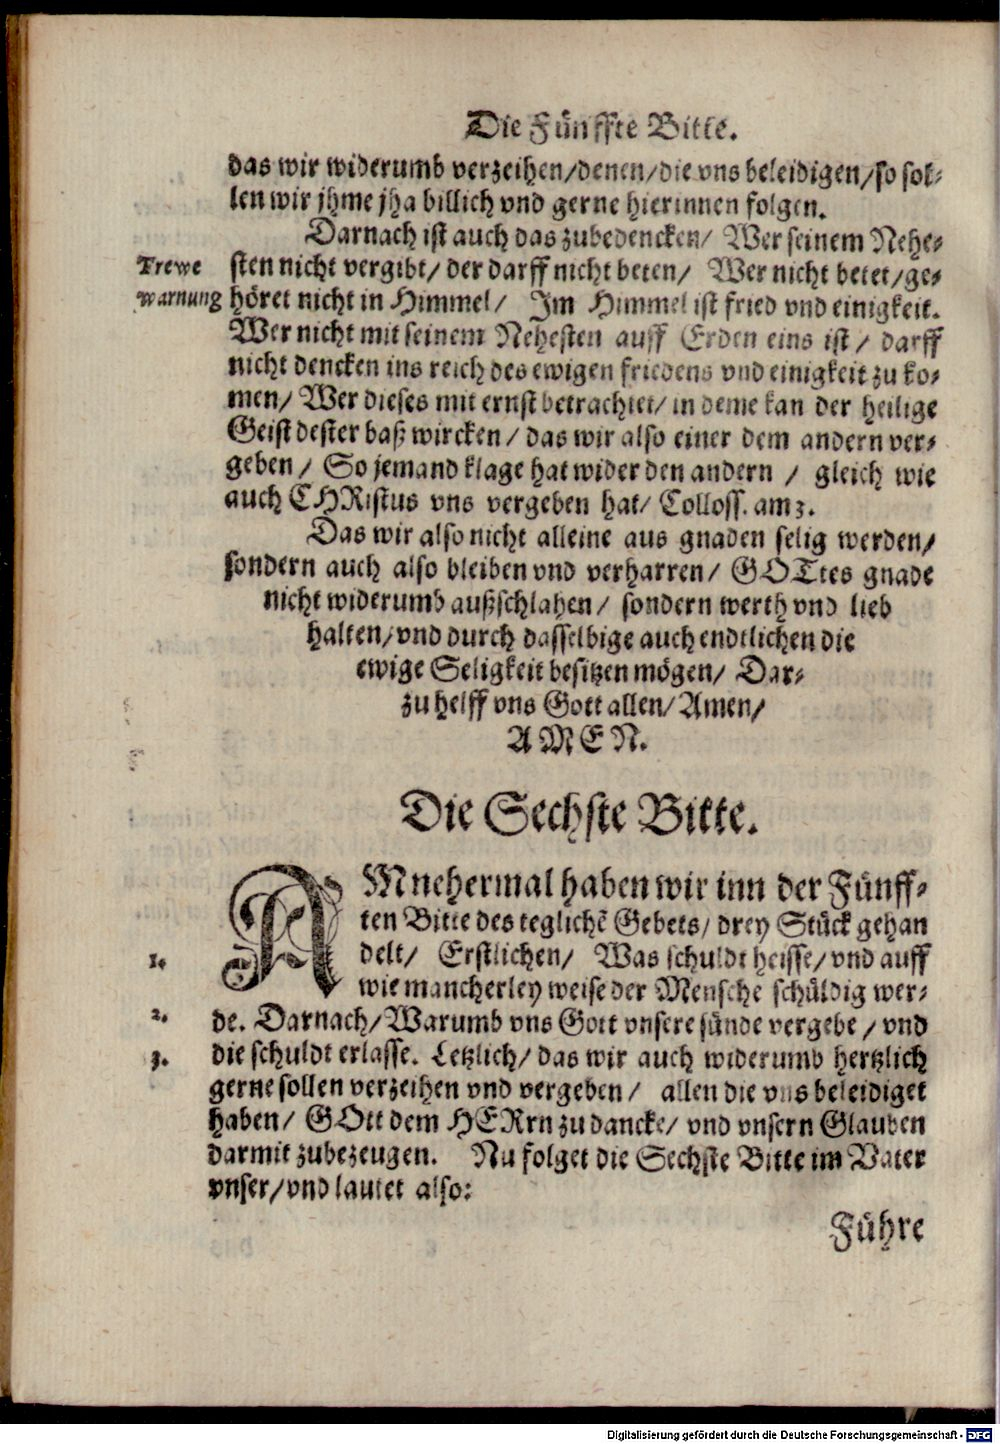 Die Fünffte Bitte.
das wir widerumb verzeihen/denen/die vns beleidigen/so sol-
len wir jhme jha billich vnd gerne hierinnen folgen.
Darnach ist auch das zubedencken/ Wer seinem Nehe-
Trewe
sten nicht vergibt/ der darff nicht beten/ Wer nicht betet/ge-
warnung
höret nicht in Himmel/ Im Himmel ist fried vnd einigkeit.
Wer nicht mit seinem Nehesten auff Erden eins ist/ darff
nicht dencken ins reich des ewigen friedens vnd einigkeit zu ko-
men/ Wer dieses mit ernst betrachtet/ in deme kan der heilige
Geist dester baß wircken/ das wir also einer dem andern ver-
geben/ So jemand klage hat wider den andern / gleich wie
auch CHRistus vns vergeben hat/ Colloss. am 3.
Das wir also nicht alleine aus gnaden selig werden/
sondern auch also bleiben vnd verharren/ GOTtes gnade
nicht widerumb außschlahen/ sondern werth vnd lieb
halten/vnd durch dasselbige auch endtlichen die
ewige Seligkeit besitzen mögen/ Dar-
zu helff vns Gott allen/ Amen/
AMEN.
Die Sechste Bitte.
AMnehermal haben wir inn der Fünff-
ten Bitte des teglichē Gebets/ drey Stück gehan
1.
delt/ Erstlichen/ Was schuldt heisse/ vnd auff
wie mancherley weise der Mensche schüldig wer-
2.
de. Darnach/Warumb vns Gott vnsere sünde vergebe / vnd
3.
die schuldt erlasse. Letzlich/ das wir auch widerumb hertzlich
gerne sollen verzeihen vnd vergeben/ allen die vns beleidiget
haben/ GOtt dem HERrn zu dancke/ vnd vnsern Glauben
darmit zubezeugen. Nu folget die Sechste Bitte im Vater
vnser/vnd lautet also:
Führe
Digitalisierung gefördert durch die Deutsche Forschungsgemeinschaft - DFG